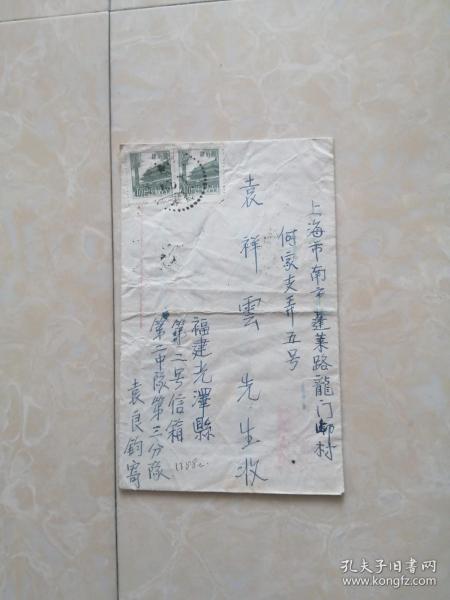 上海市南市蓬莱路龍门邨村
何家支弄五号
袁祥雲先生收
福建光澤縣
第二号信箱
第二中隊第三分隊
袁良鈞寄
孔夫子旧书网
www.kongfz.com